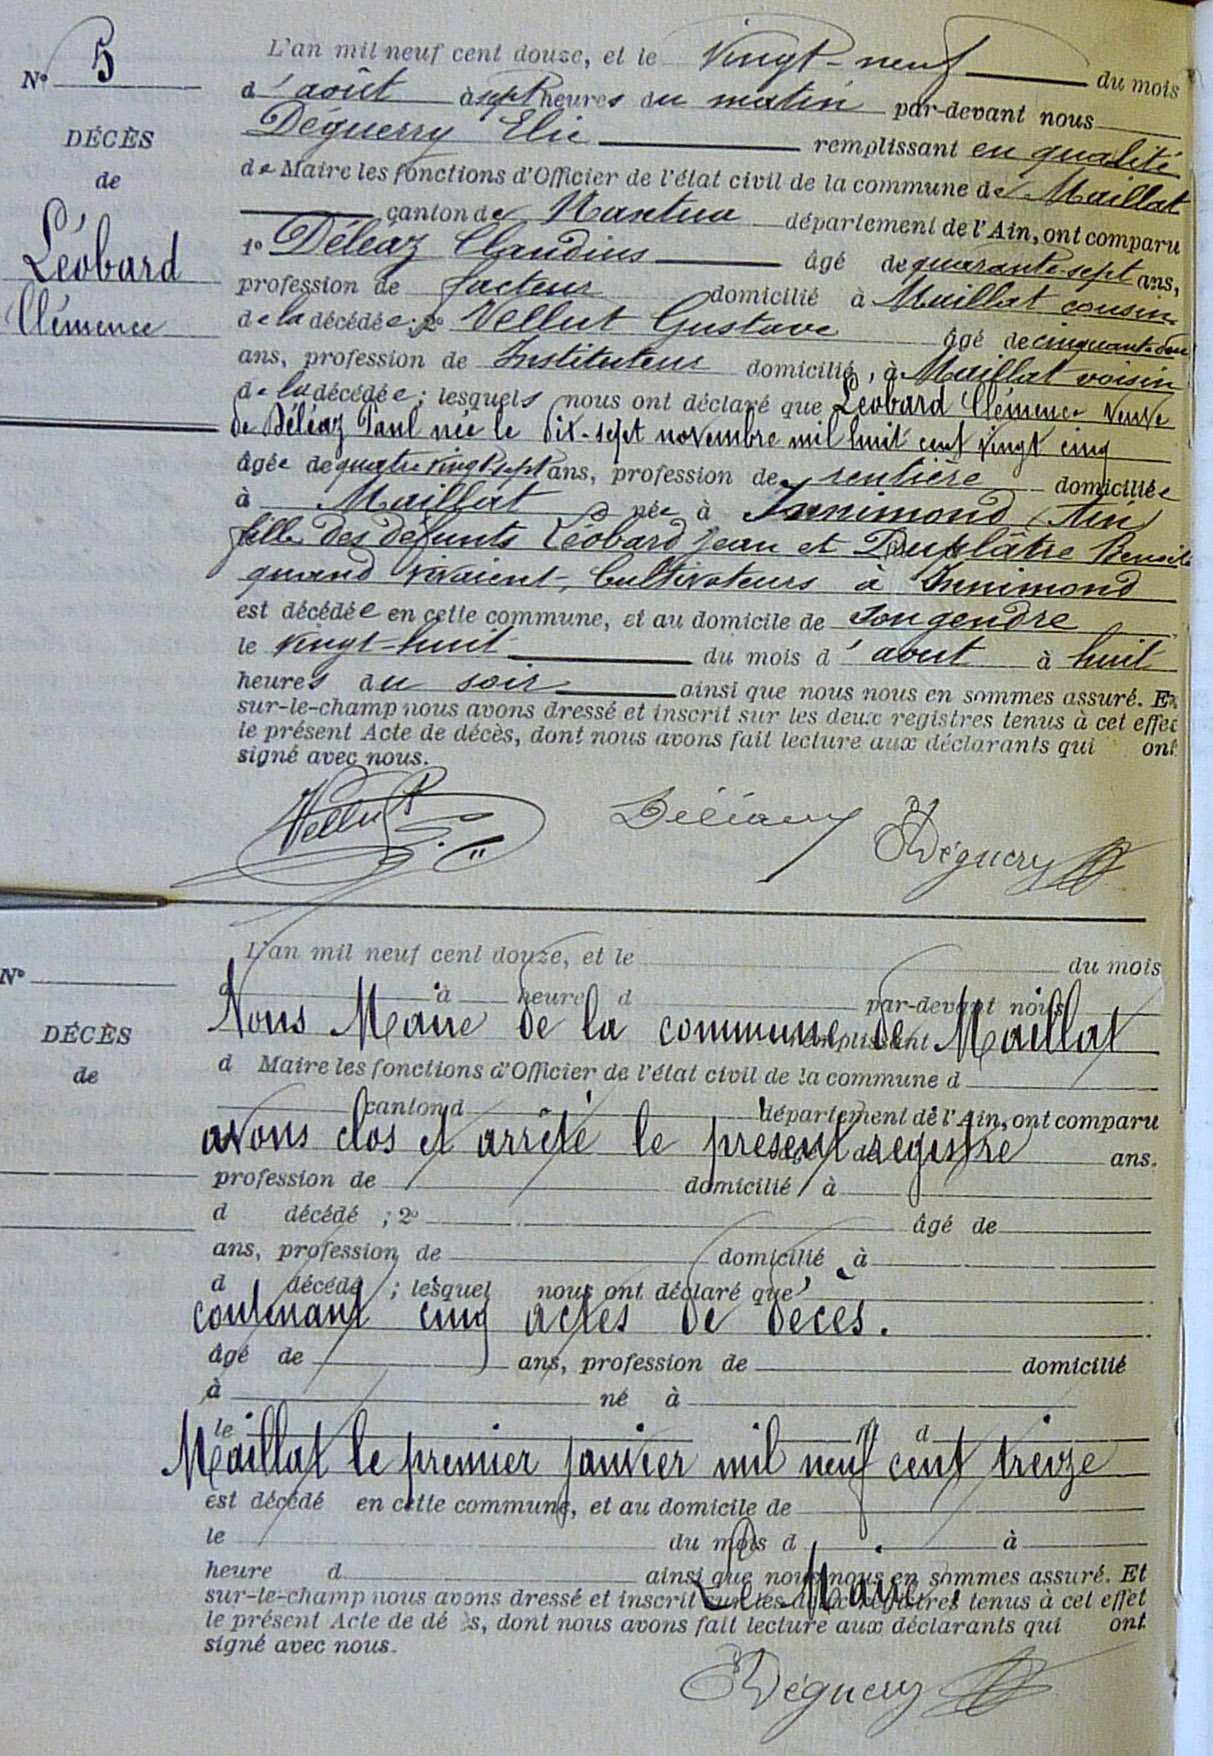 N° 5
DÉCÈS
de
Léobard
Clémence
L'an mil neuf cent douze, et le vingt-neuf du mois
d'août à sept heures du matin par-devant nous
Deguerry Elie remplissant en qualité
de Maire les fonctions d'Officier de l'état civil de la commune de Maillat
canton de Nantua département de l'Ain, ont comparu
1° Déléaz Claudius âgé de quarante-sept ans,
profession de facteur domicilié à Maillat cousin
de la décédée; 2° Vellut Gustave âgé de cinquante-deux
ans, profession de Instituteur domicilié, à Maillat voisin
de la décédée; lesquels nous ont déclaré que Léobard Clémence veuve
de Déléaz Paul née le dix-sept novembre mil huit cent vingt cinq
âgée de quatre vingt sept ans, profession de rentière domiciliée
à Maillat née à Innimond (Ain)
fille des défunts Léobard Jean et Duplâtre Benoite
quand vivaient, Cultivateurs à Innimond
est décédée en cette commune, et au domicile de son gendre
le vingt-huit du mois d'août à huit
heures du soir ainsi que nous nous en sommes assuré. Et
sur-le-champ nous avons dressé et inscrit sur les deux registres tenus à cet effet
le présent Acte de décès, dont nous avons fait lecture aux déclarants qui ont
signé avec nous.
Vellut G. Déléaz E Déguerry
L'an mil neuf cent douze, et le du mois
N°
d à heure d par-devant nous
Nous Maire de la commune de Maillat
remplissant
DÉCÈS
de
d Maire les fonctions d'Officier de l'état civil de la commune d
canton d département de l'Ain, ont comparu
avons clos et arrêté le présent registre
âgé de ans.
profession de domicilié à
d décédé ; 2° âgé de
ans, profession de domicilié à
d décédé ; lesquel nous ont déclaré que
contenant cinq actes de décès.
âgé de ans, profession de domicilié
à né à
le d
Maillat le premier janvier mil neuf cent treize
est décédé en cette commune, et au domicile de
le du mois d à
heure d ainsi que nous nous en sommes assuré. Et
Le Maire,
sur-le-champ nous avons dressé et inscrit sur les deux registres tenus à cet effet
le présent Acte de décès, dont nous avons fait lecture aux déclarants qui ont
signé avec nous.
E Déguerry